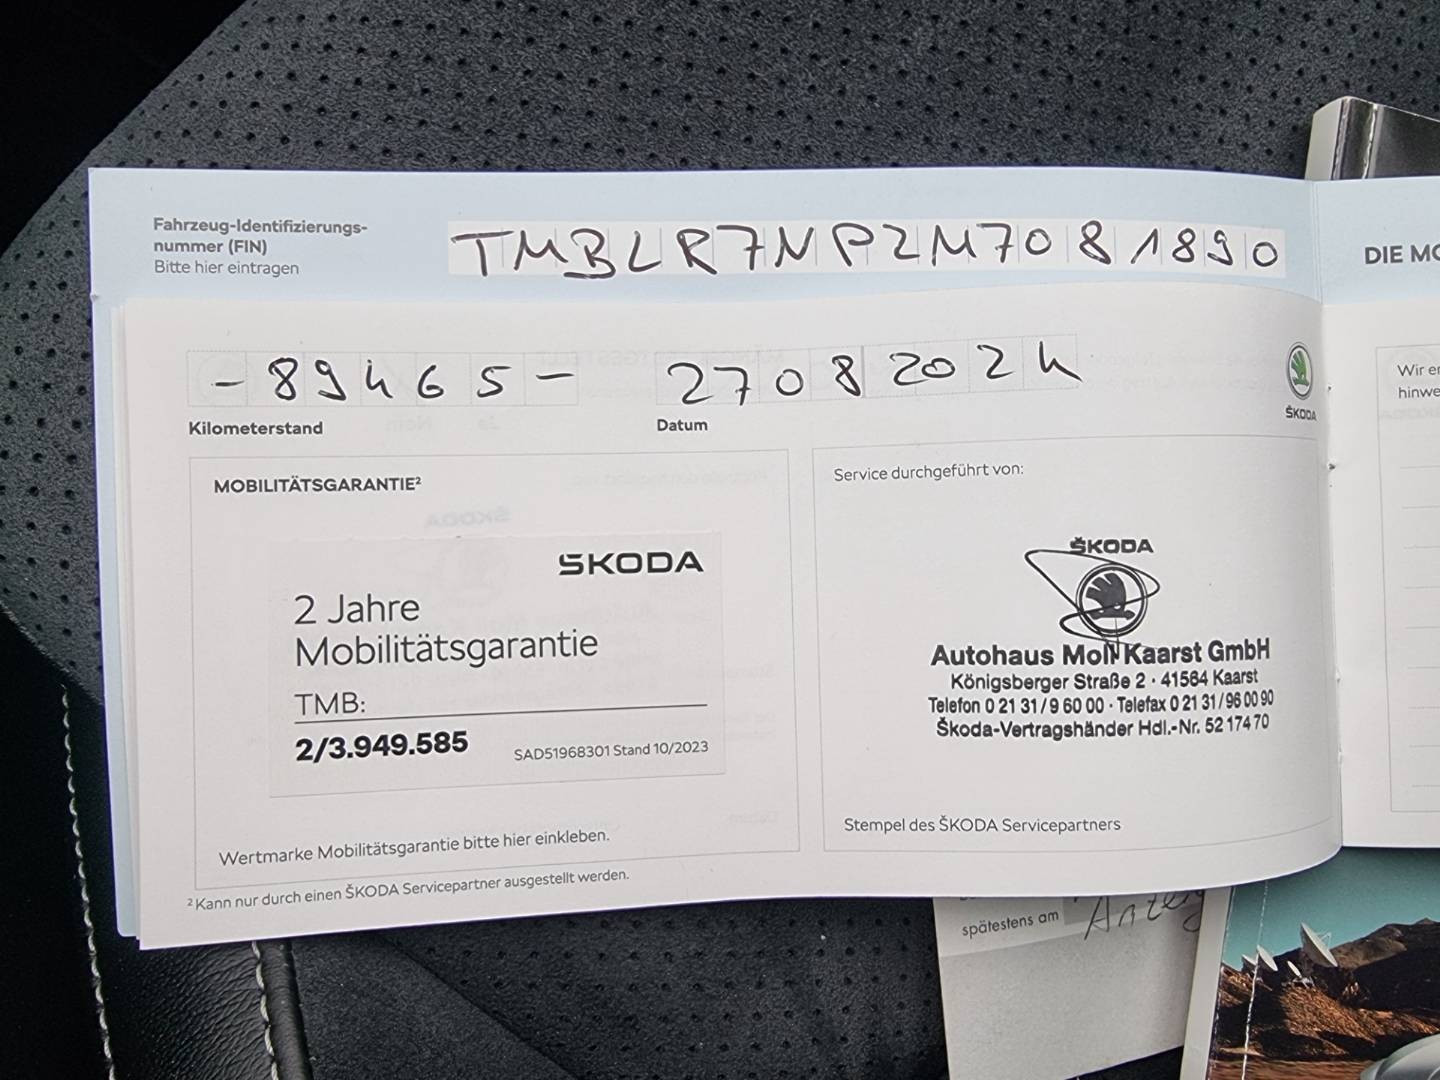 Fahrzeug-Identifizierungs-
nummer (FIN)
Bitte hier eintragen
TMBLR7NP2M7081890
DIE MO
- 89465 -
27082024
Kilometerstand
Datum
ŠKODA
Wir er
hinwe
MOBILITÄTSGARANTIE²
Service durchgeführt von:
ŠKODA
2 Jahre
Mobilitätsgarantie
TMB:
2/3.949.585
SAD51968301 Stand 10/2023
ŠKODA
Autohaus Moll Kaarst GmbH
Königsberger Straße 2 · 41564 Kaarst
Telefon 0 21 31 / 9 60 00 · Telefax 0 21 31 / 96 00 90
Škoda-Vertragshänder Hdl.-Nr. 52 174 70
Wertmarke Mobilitätsgarantie bitte hier einkleben.
Stempel des ŠKODA Servicepartners
² Kann nur durch einen ŠKODA Servicepartner ausgestellt werden.
spätestens am